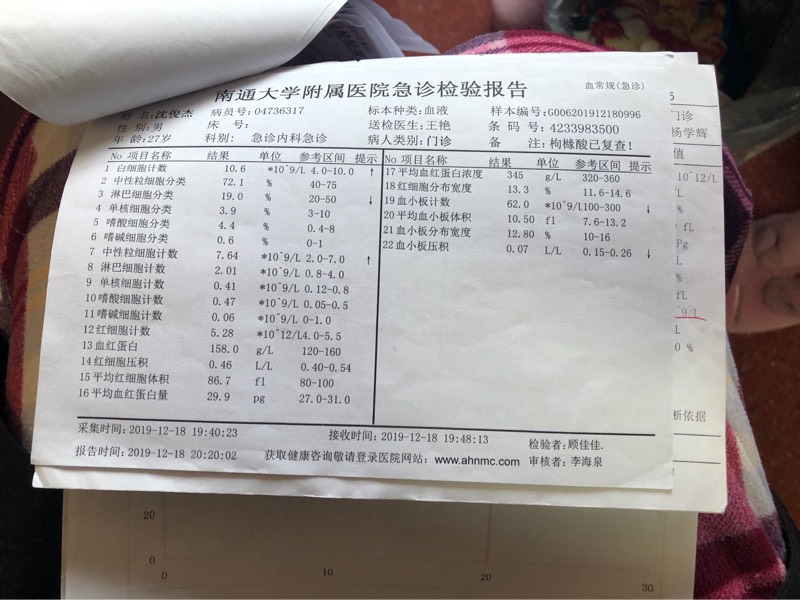 南通大学附属医院急诊检验报告
血常规(急诊)
姓名:沈俊杰 病员号:04736317 标本种类:血液 样本编号:G006201912180996
性别:男 床号: 送检医生:王艳 条码号:4233983500
年龄:27岁 科别:急诊内科急诊 病人类别:门诊 备注:枸橼酸已复查!
No 项目名称 结果 单位 参考区间 提示
1 白细胞计数 10.6 *10^9/L 4.0-10.0 ↑
2 中性粒细胞分类 72.1 % 40-75
3 淋巴细胞分类 19.0 % 20-50 ↓
4 单核细胞分类 3.9 % 3-10
5 嗜酸细胞分类 4.4 % 0.4-8
6 嗜碱细胞分类 0.6 % 0-1
7 中性粒细胞计数 7.64 *10^9/L 2.0-7.0 ↑
8 淋巴细胞计数 2.01 *10^9/L 0.8-4.0
9 单核细胞计数 0.41 *10^9/L 0.12-0.8
10嗜酸细胞计数 0.47 *10^9/L 0.05-0.5
11嗜碱细胞计数 0.06 *10^9/L 0-1.0
12红细胞计数 5.28 *10^12/L4.0-5.5
13血红蛋白 158.0 g/L 120-160
14红细胞压积 0.46 L/L 0.40-0.54
15平均红细胞体积 86.7 fl 80-100
16平均血红蛋白量 29.9 pg 27.0-31.0
No 项目名称 结果 单位 参考区间 提示
17平均血红蛋白浓度 345 g/L 320-360
18红细胞分布宽度 13.3 % 11.6-14.6
19血小板计数 62.0 *10^9/L100-300 ↓
20平均血小板体积 10.50 fl 7.6-13.2
21血小板分布宽度 12.80 % 10-16
22血小板压积 0.07 L/L 0.15-0.26 ↓
采集时间:2019-12-18 19:40:23 接收时间:2019-12-18 19:48:13 检验者:顾佳佳.
报告时间:2019-12-18 20:20:02 获取健康咨询敬请登录医院网站:www.ahnmc.com 审核者:李海泉
5
门诊
杨学辉
值
12/L
%
fL
Pg
L
%
fL
9/L
L
0 %
断依据
20
0
0 10 20 30